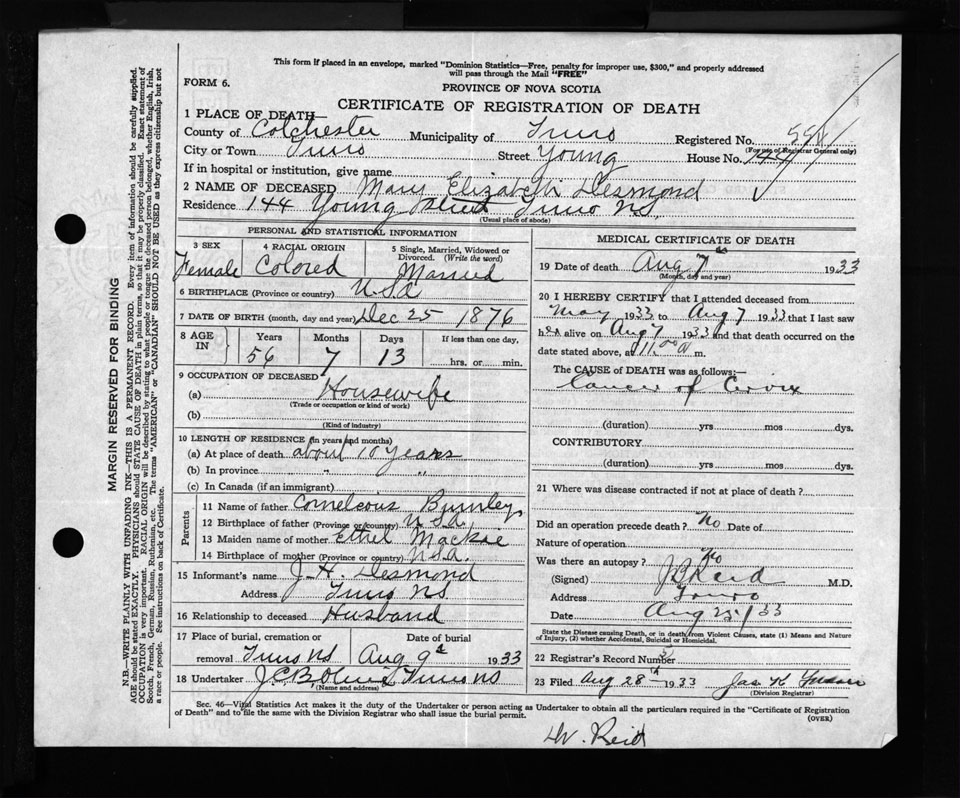 This form if placed in an envelope, marked "Dominion Statistics—Free, penalty for improper use, $300," and properly addressed
will pass through the Mail "FREE"
FORM 6.
PROVINCE OF NOVA SCOTIA
CERTIFICATE OF REGISTRATION OF DEATH
1 PLACE OF DEATH
County of Colchester Municipality of Truro Registered No.
(For use of Registrar General only)
City or Town Truro Street Young House No. 144
If in hospital or institution, give name
2 NAME OF DECEASED Mary Elizabeth Desmond
Residence 144 Young Street Truro N.S.
(Usual place of abode)
PERSONAL AND STATISTICAL INFORMATION
3 SEX Female
4 RACIAL ORIGIN Colored
5 Single, Married, Widowed or Divorced. (Write the word) Married
6 BIRTHPLACE (Province or country) USA
7 DATE OF BIRTH (month, day and year) Dec 25 1876
8 AGE IN Years Months Days If less than one day,
56 7 13 hrs. or min.
9 OCCUPATION OF DECEASED
(a) Housewife
(Trade or occupation or kind of work)
(b)
(Kind of industry)
10 LENGTH OF RESIDENCE (in years and months)
(a) At place of death about 10 years
(b) In province " "
(c) In Canada (if an immigrant)
Parents
11 Name of father Corneleous Bumley
12 Birthplace of father (Province or country) USA
13 Maiden name of mother Ethel Mackie
14 Birthplace of mother (Province or country) USA.
15 Informant's name J. H. Desmond
Address Truro NS
16 Relationship to deceased Husband
17 Place of burial, cremation or removal Truro NS
Date of burial Aug 9th 1933
18 Undertaker Truro NS
(Name and address)
MEDICAL CERTIFICATE OF DEATH
19 Date of death Aug 7th 1933
(Month, day and year)
20 I HEREBY CERTIFY that I attended deceased from
May 1933 to Aug 7 1933 that I last saw
her alive on Aug 7 1933 and that death occurred on the
date stated above, at 11.00 a m.
The CAUSE of DEATH was as follows:—
Cancer of Cervix
(duration) yrs mos dys.
CONTRIBUTORY
(duration) yrs mos dys.
21 Where was disease contracted if not at place of death?
Did an operation precede death? No Date of
Nature of operation
Was there an autopsy? No
(Signed) J B Reid M.D.
Address Truro
Date Aug 25/33
State the Disease causing Death, or in death from Violent Causes, state (1) Means and Nature
of Injury, (2) whether Accidental, Suicidal or Homicidal.
22 Registrar's Record Number
23 Filed Aug 28th 1933 Jas. K.
(Division Registrar)
Sec. 46—Vital Statistics Act makes it the duty of the Undertaker or person acting as Undertaker to obtain all the particulars required in the "Certificate of Registration
of Death" and to file the same with the Division Registrar who shall issue the burial permit.
(OVER)
Dr. Reid
MARGIN RESERVED FOR BINDING
N.B.—WRITE PLAINLY WITH UNFADING INK—THIS IS A PERMANENT RECORD. Every item of information should be carefully supplied.
AGE should be stated EXACTLY. PHYSICIANS should STATE CAUSE OF DEATH in plain terms, so that it may be properly classified. Exact statement of
OCCUPATION is very important. RACIAL ORIGIN will be described by stating to what people or tongue the deceased person belonged, whether English, Irish,
Scotch, French, German, Russian, Ruthenian, etc. The terms "AMERICAN" or "CANADIAN" SHOULD NOT BE USED as they express citizenship but not
a race or people. See instructions on back of Certificate.